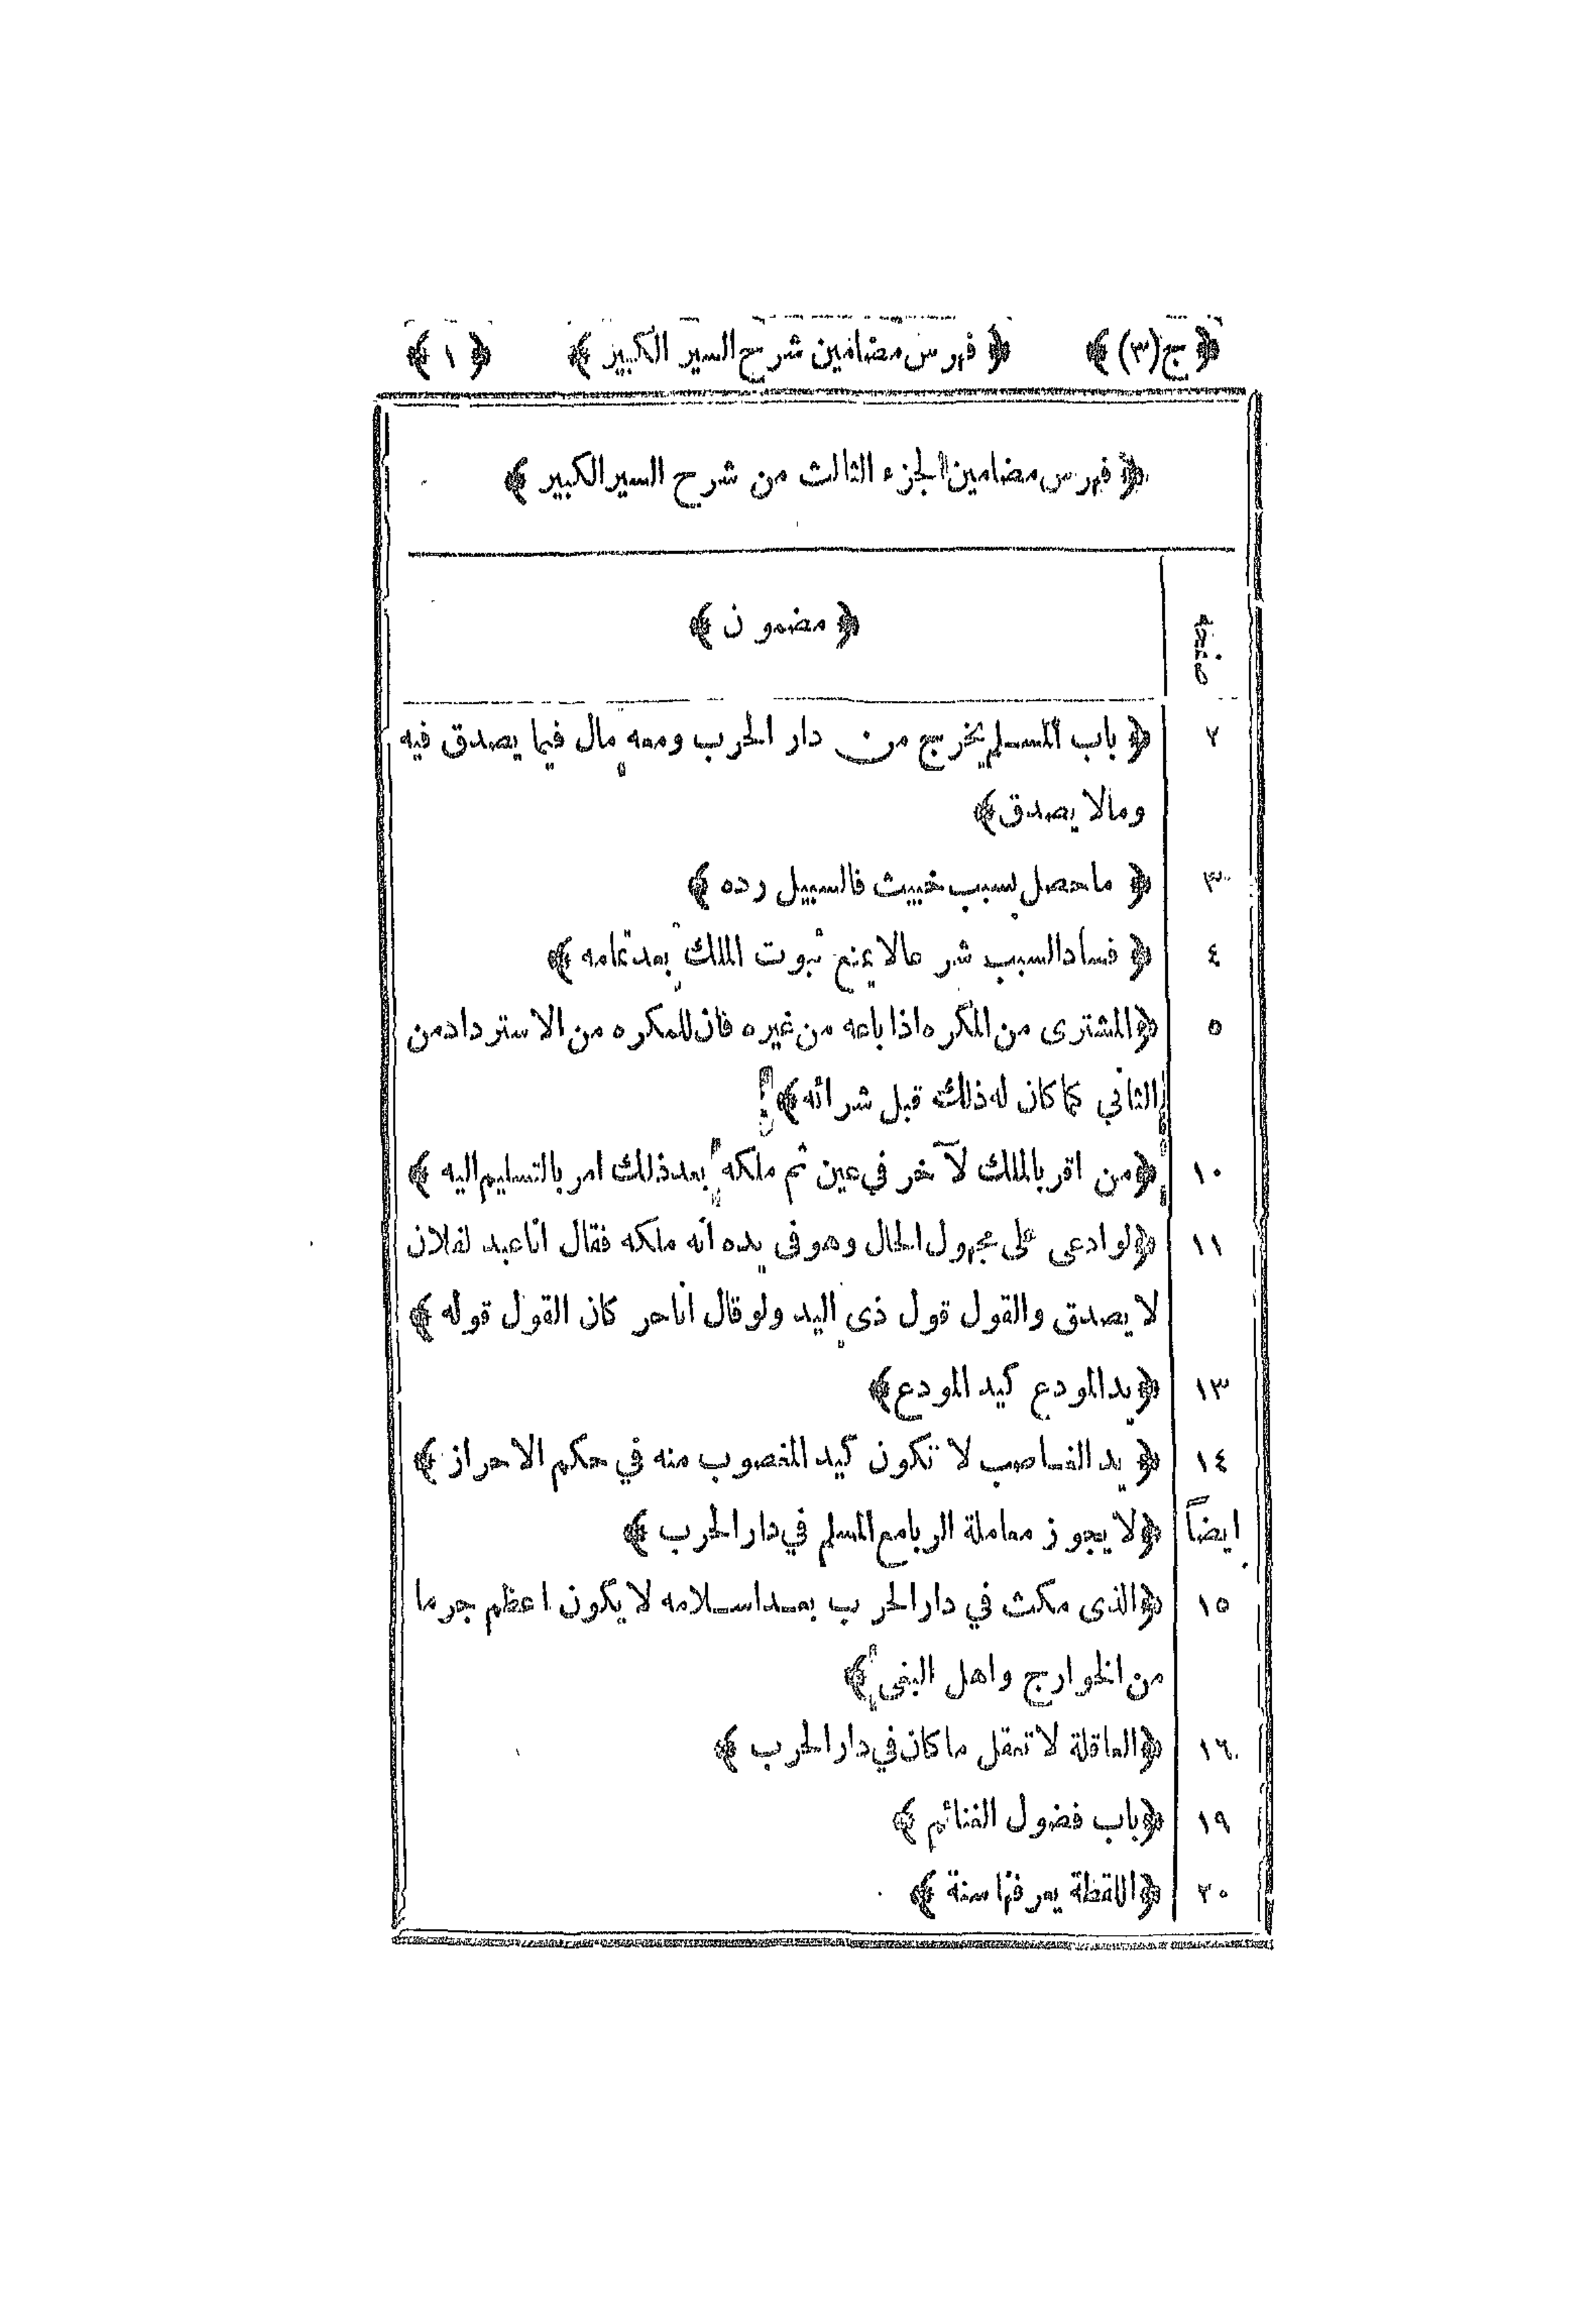 ﴿ ج(٣) ﴾ ﴿ فهرس مضامين شرح السير الكبير ﴾ ﴿ ١ ﴾
﴿ فهرس مضامين الجزء الثالث من شرح السير الكبير ﴾
صفحه ﴿ مضمون ﴾
٢ ﴿ باب المسلم يخرج من دار الحرب ومعه مال فيما يصدق فيه
ومالا يصدق ﴾
٣ ﴿ ماحصل بسبب خبيث فالسبيل رده ﴾
٤ ﴿ فساد السبب شرعا لا يمنع ثبوت الملك بعد تمامه ﴾
٥ ﴿ المشترى من المكره اذا باعه من غيره فان للمكره من الاسترداد من
الثاني كما كان له ذلك قبل شرائه ﴾
١٠ ﴿ من اقر بالملك لآخر في عين ثم ملكه بعد ذلك امر بالتسليم اليه ﴾
١١ ﴿ لو ادعى على مجهول الحال وهو فى يده انه ملكه فقال انا عبد لفلان
لا يصدق والقول قول ذى اليد ولو قال انا حر كان القول قوله ﴾
١٣ ﴿ يد المودع كيد المودع ﴾
١٤ ﴿ يد الغاصب لا تكون كيد المغصوب منه في حكم الاحراز ﴾
ايضاً ﴿ لا يجوز معاملة الربا مع المسلم في دار الحرب ﴾
١٥ ﴿ الذى مكث في دار الحرب بعد اسلامه لا يكون اعظم جرما
من الخوارج واهل البغى ﴾
١٦ ﴿ العاقلة لا تعقل ما كان في دار الحرب ﴾
١٩ ﴿ باب فضول الغنائم ﴾
٢٠ ﴿ اللقطة يعرفها سنة ﴾